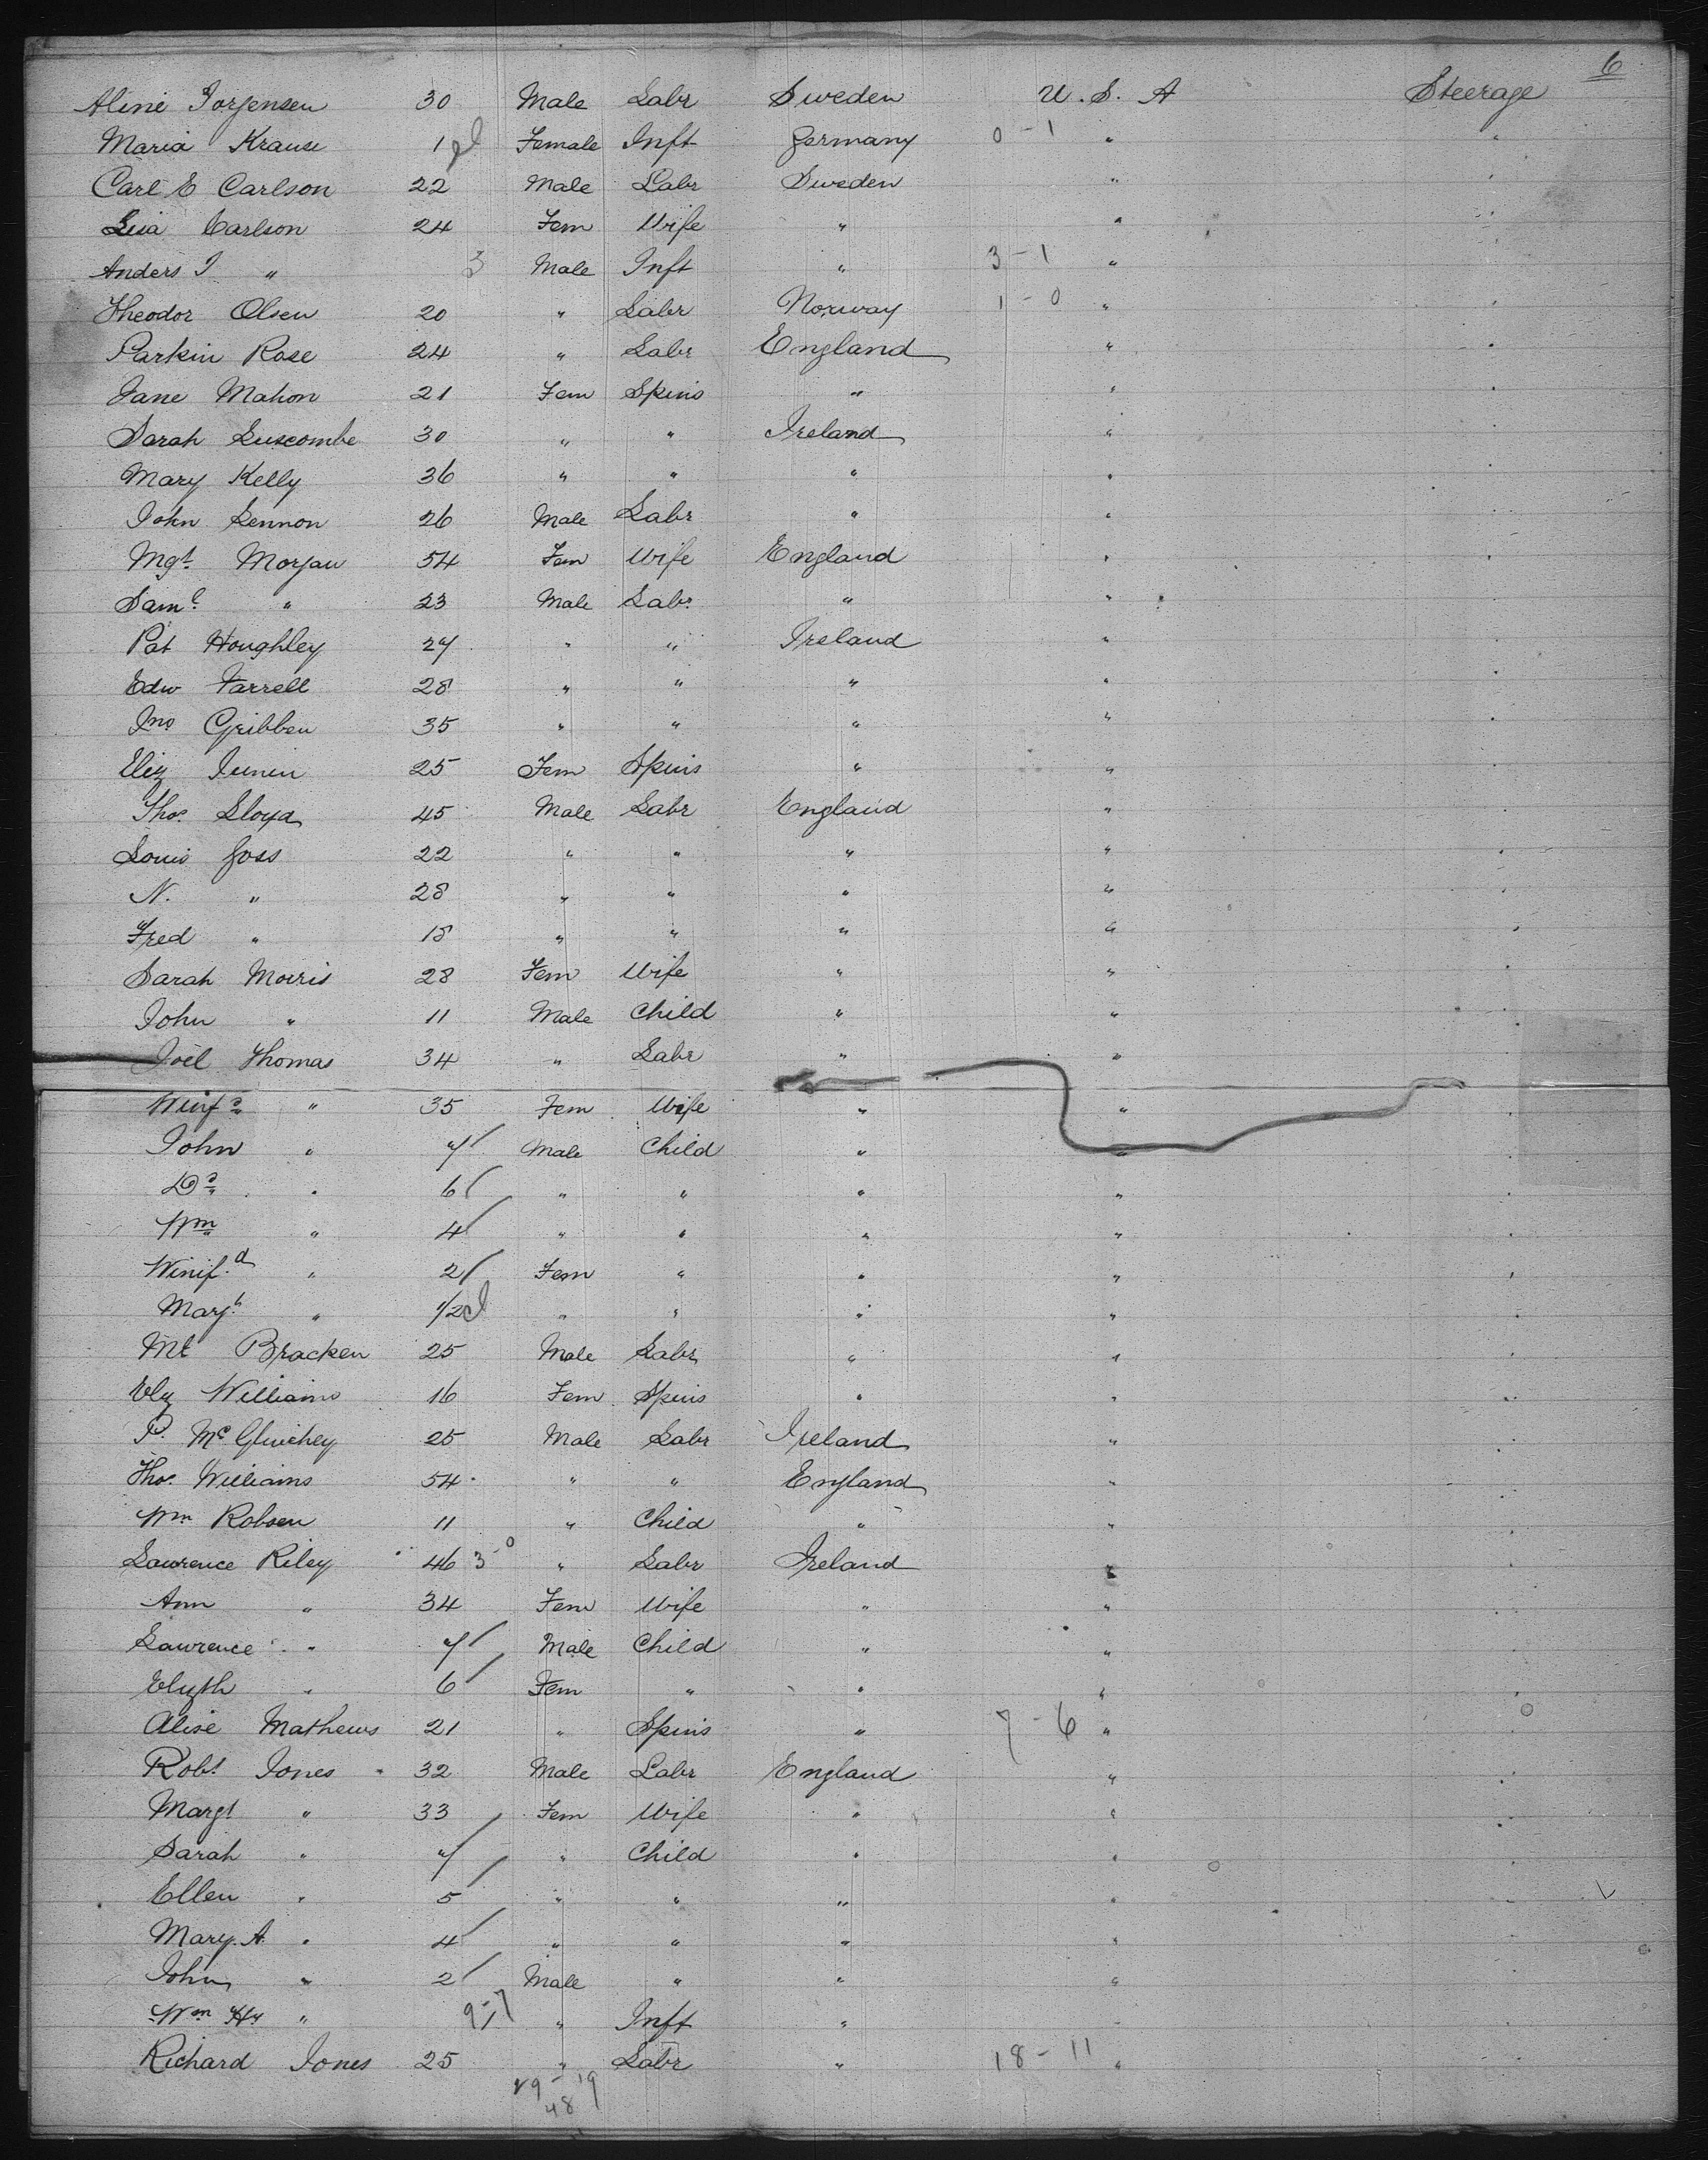 6
Aline Jorgensen 30 Male Labr Sweden U. S. A Steerage
Maria Krause 1 Female Inft Germany 0-1 " "
Carl E Carlson 22 Male Labr Sweden " "
Lisa Carlson 24 Fem Wife " " "
Anders J " 3 Male Inft " 3-1 "
Theodor Olsen 20 " Labr Norway 1-0 " "
Parkin Rose 24 " Labr England " "
Jane Mahon 21 Fem Spins " " "
Sarah Luscombe 30 " " Ireland " "
Mary Kelly 36 " " " " "
John Lennon 26 Male Labr " " "
Mgt. Morgan 54 Fem Wife England " "
Saml. " 23 Male Labr " "
Pat Houghley 27 " " Ireland " "
Edw Farrell 28 " " " " "
Jno Gribben 35 " " " " "
Eliz 25 Fem Spins " " "
Thos. Lloyd 45 Male Labr England " "
Louis Goss 22 " " " " "
N. " 28 " " " " "
Fred " 18 " " " " "
Sarah Morris 28 Fem Wife " " "
John " 11 Male Child " " "
Joel Thomas 34 " Labr " " "
Winfd " 35 Fem Wife " " "
John " 7 Male Child " " "
Dd " 6 " " " " "
Wm " 4 " " " " "
Winif.d " 2 Fem " " " "
Margt " 1/2 " " " " "
Mt Bracken 25 Male Labr " " "
Elz Williams 16 Fem Spins " " "
P. McGlinchey 25 Male Labr Ireland " "
Thos. Williams 54 " " England " "
Wm Robson 11 " Child " " "
Lawrence Riley 46 3-0 " Labr Ireland " "
Ann " 34 Fem Wife " " "
Lawrence " 7 Male Child " " "
Elizth " 6 Fem " " " "
Alise Mathews 21 " Spins " 7-6 " "
Robt Jones 32 Male Labr England " "
Margt " 33 Fem Wife " " "
Sarah " 7 " Child " " "
Ellen " 5 " " " " "
Mary. A. " 4 " " " " "
John " 2 Male " " " "
Wm Hy " 9-7 " Inft " " "
Richard Jones 25 " Labr " 18-11 "
29-19
48